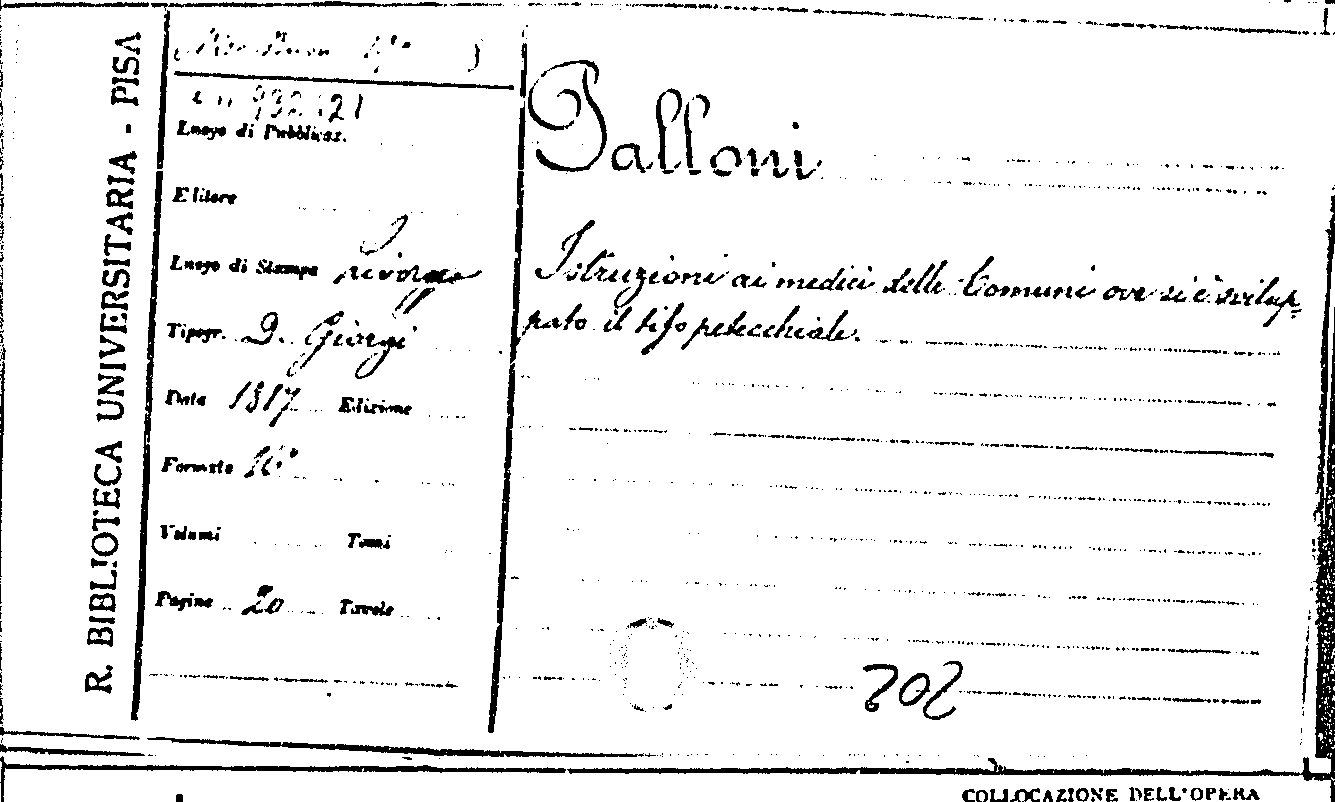 R. BIBLIOTECA UNIVERSITARIA - PISA
Luogo di Pubblicaz.
Editore
Luogo di Stampa Livorno
Tipogr. D. Giorgi
Data 1817 Edizione
Formato 16°
Volumi Tomi
Pagine 20 Tavole
Palloni
Istruzioni ai medici delle Comuni ove si è svilup=
pato il tifo petecchiale.
COLLOCAZIONE DELL'OPERA